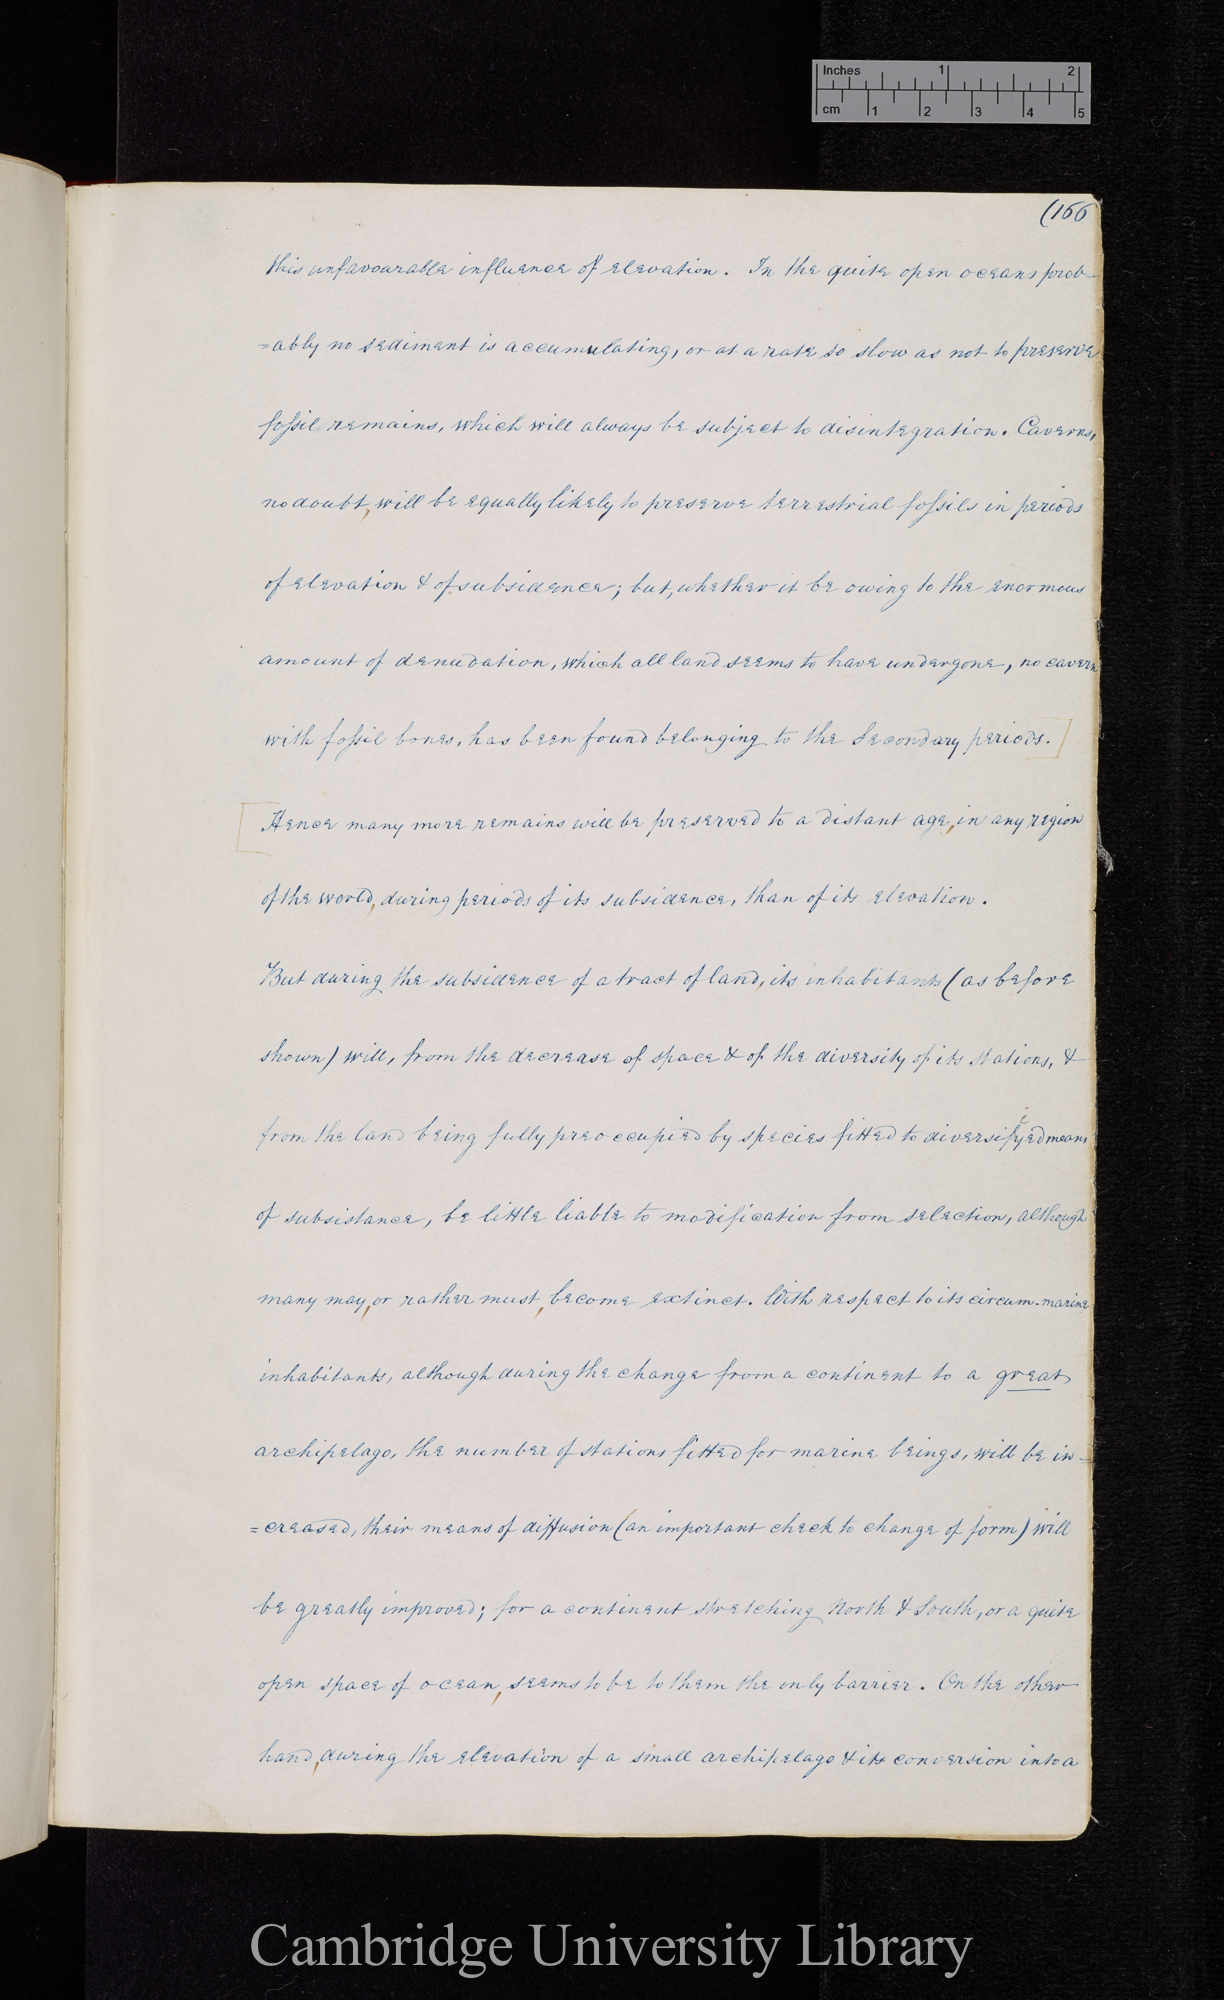 Inches 1 2
cm 1 2 3 4 5
(166
this unfavourable influence of elevation. In the quite open oceans prob-
=ably no sediment is accumulating, or at a rate so slow as not to preserve
fossil remains, which will always be subject to disintegration. Caverns,
no doubt, will be equally likely to preserve terrestrial fossils in periods
of elevation & of subsidence; but, whether it be owing to the enormous
amount of denudation, which all land seems to have undergone, no cavern
with fossil bones, has been found belonging to the Secondary periods.]
[Hence many more remains will be preserved to a distant age, in any region
of the world, during periods of its subsidence, than of its elevation.
But during the subsidence of a tract of land, its inhabitants (as before
shown) will, from the decrease of space & of the diversity of its stations, &
from the land being fully preoccupied by species fitted to diversifyed means
of subsistance, be little liable to modification from selection, although
many may, or rather must, become extinct. With respect to its circum-marine
inhabitants, although during the change from a continent to a great
archipelago, the number of stations fitted for marine beings, will be in-
=creased, their means of diffusion (an important check to change of form) will
be greatly improved; for a continent stretching North & South, or a quite
open space of ocean, seems to be to them the only barrier. On the other
hand, during the elevation of a small archipelago & its conversion into a
Cambridge University Library